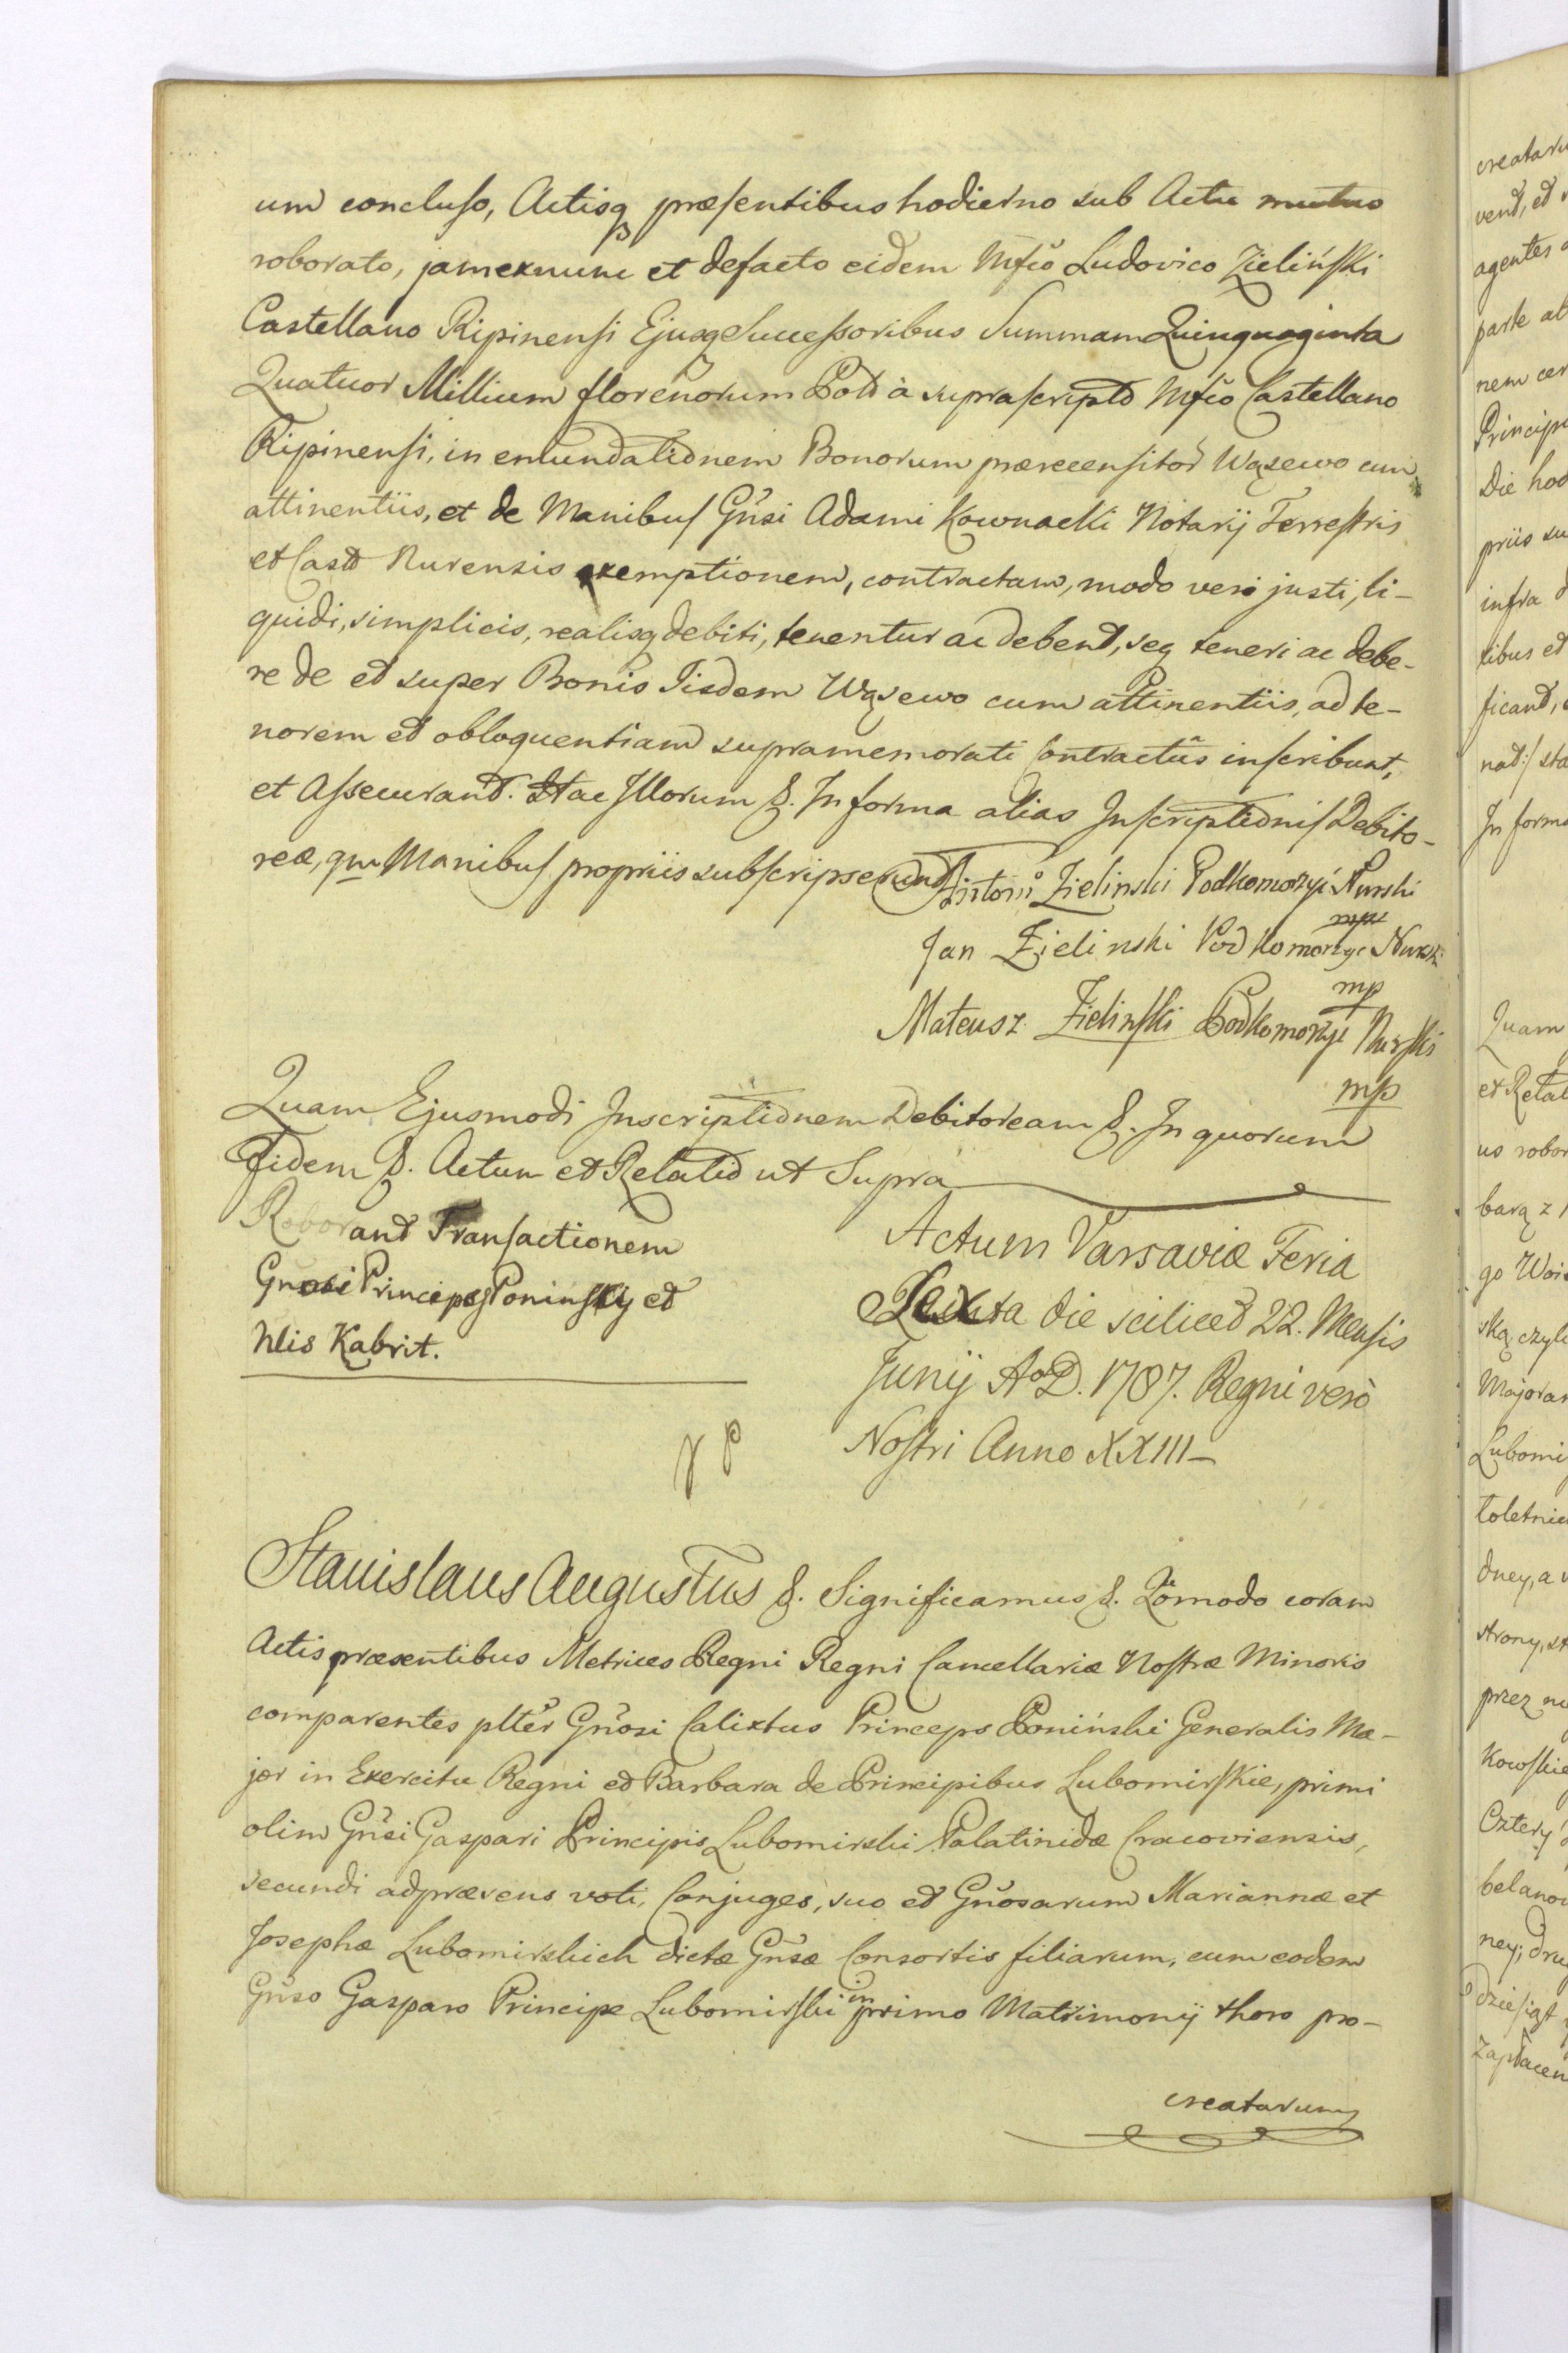 um concluso, Actisq præsentibus hodierno sub Actu mutuo
roborato, jamexnunc et defacto eidem Mfco Ludovico Zieliński
Castellano Ripinensi Ejusq Successoribus Summam Quinquaginta
Quatuor Millium florenorum Pol à suprascripto Mfco Castellano
Ripinensi, in emundationem Bonorum præcensitor Wąsewo cum
attinentiis, et de Manibus Gnsi Adami Kownacki Notarij Terrestris
et Cast Nurensis exemptionem, contractam, modo vero justi, li-
quidi, simplicis, realisq debiti, tenentur ac debent, seq teneri ac debe-
re de et super Bonis Iisdem Wąsewo cum attinentiis, ad te-
norem et obloquentiam supramemorati Contractûs inscribunt,
et Assecurant. Hac Illorum &. In forma alias Inscriptionis Debito-
reæ, qm Manibus propriis subscripserunt Antoni Zielinski Podkomorzyc Nurski
mp
Jan Zielinski Podkomorzyc Nurski
mp
Mateusz Zielinski Podkomorzyc Nurski
mp
Quam Ejusmodi Inscriptionem Debitoream &. In quorum
Fidem &. Actum et Relatio ut Supra
Roborant Transactionem
Gnosi Princeps Poninskij et
Nlis Kabrit.
Actum Varsaviæ Feria
Sexta die scilicet 22. Mensis
Junij AoD. 1787. Regni verò
Nostri Anno XXIII-
Stanislaus Augustus &. Significamus &. Qomodo coram
Actis præsentibus Metrices Regni Regni Cancellariæ Nostræ Minoris
comparentes plter Gnosi Calixtus Princeps Poniński Generalis Ma-
jor in Exercitu Regni et Barbara de Principibus Lubomirskie, primi
olim Gnsi Gaspari Principis Lubomirski Palatinidæ Cracoviensis,
secundi adpræsens voti, Conjuges, suo et Gnosarum Mariannæ et
Josephæ Lubomirskich dictæ Gnsæ Consortis filiarum, cum eodem
Gnso Gasparo Principe Lubomirski in primo Matrimonij thoro pro-
creatarum